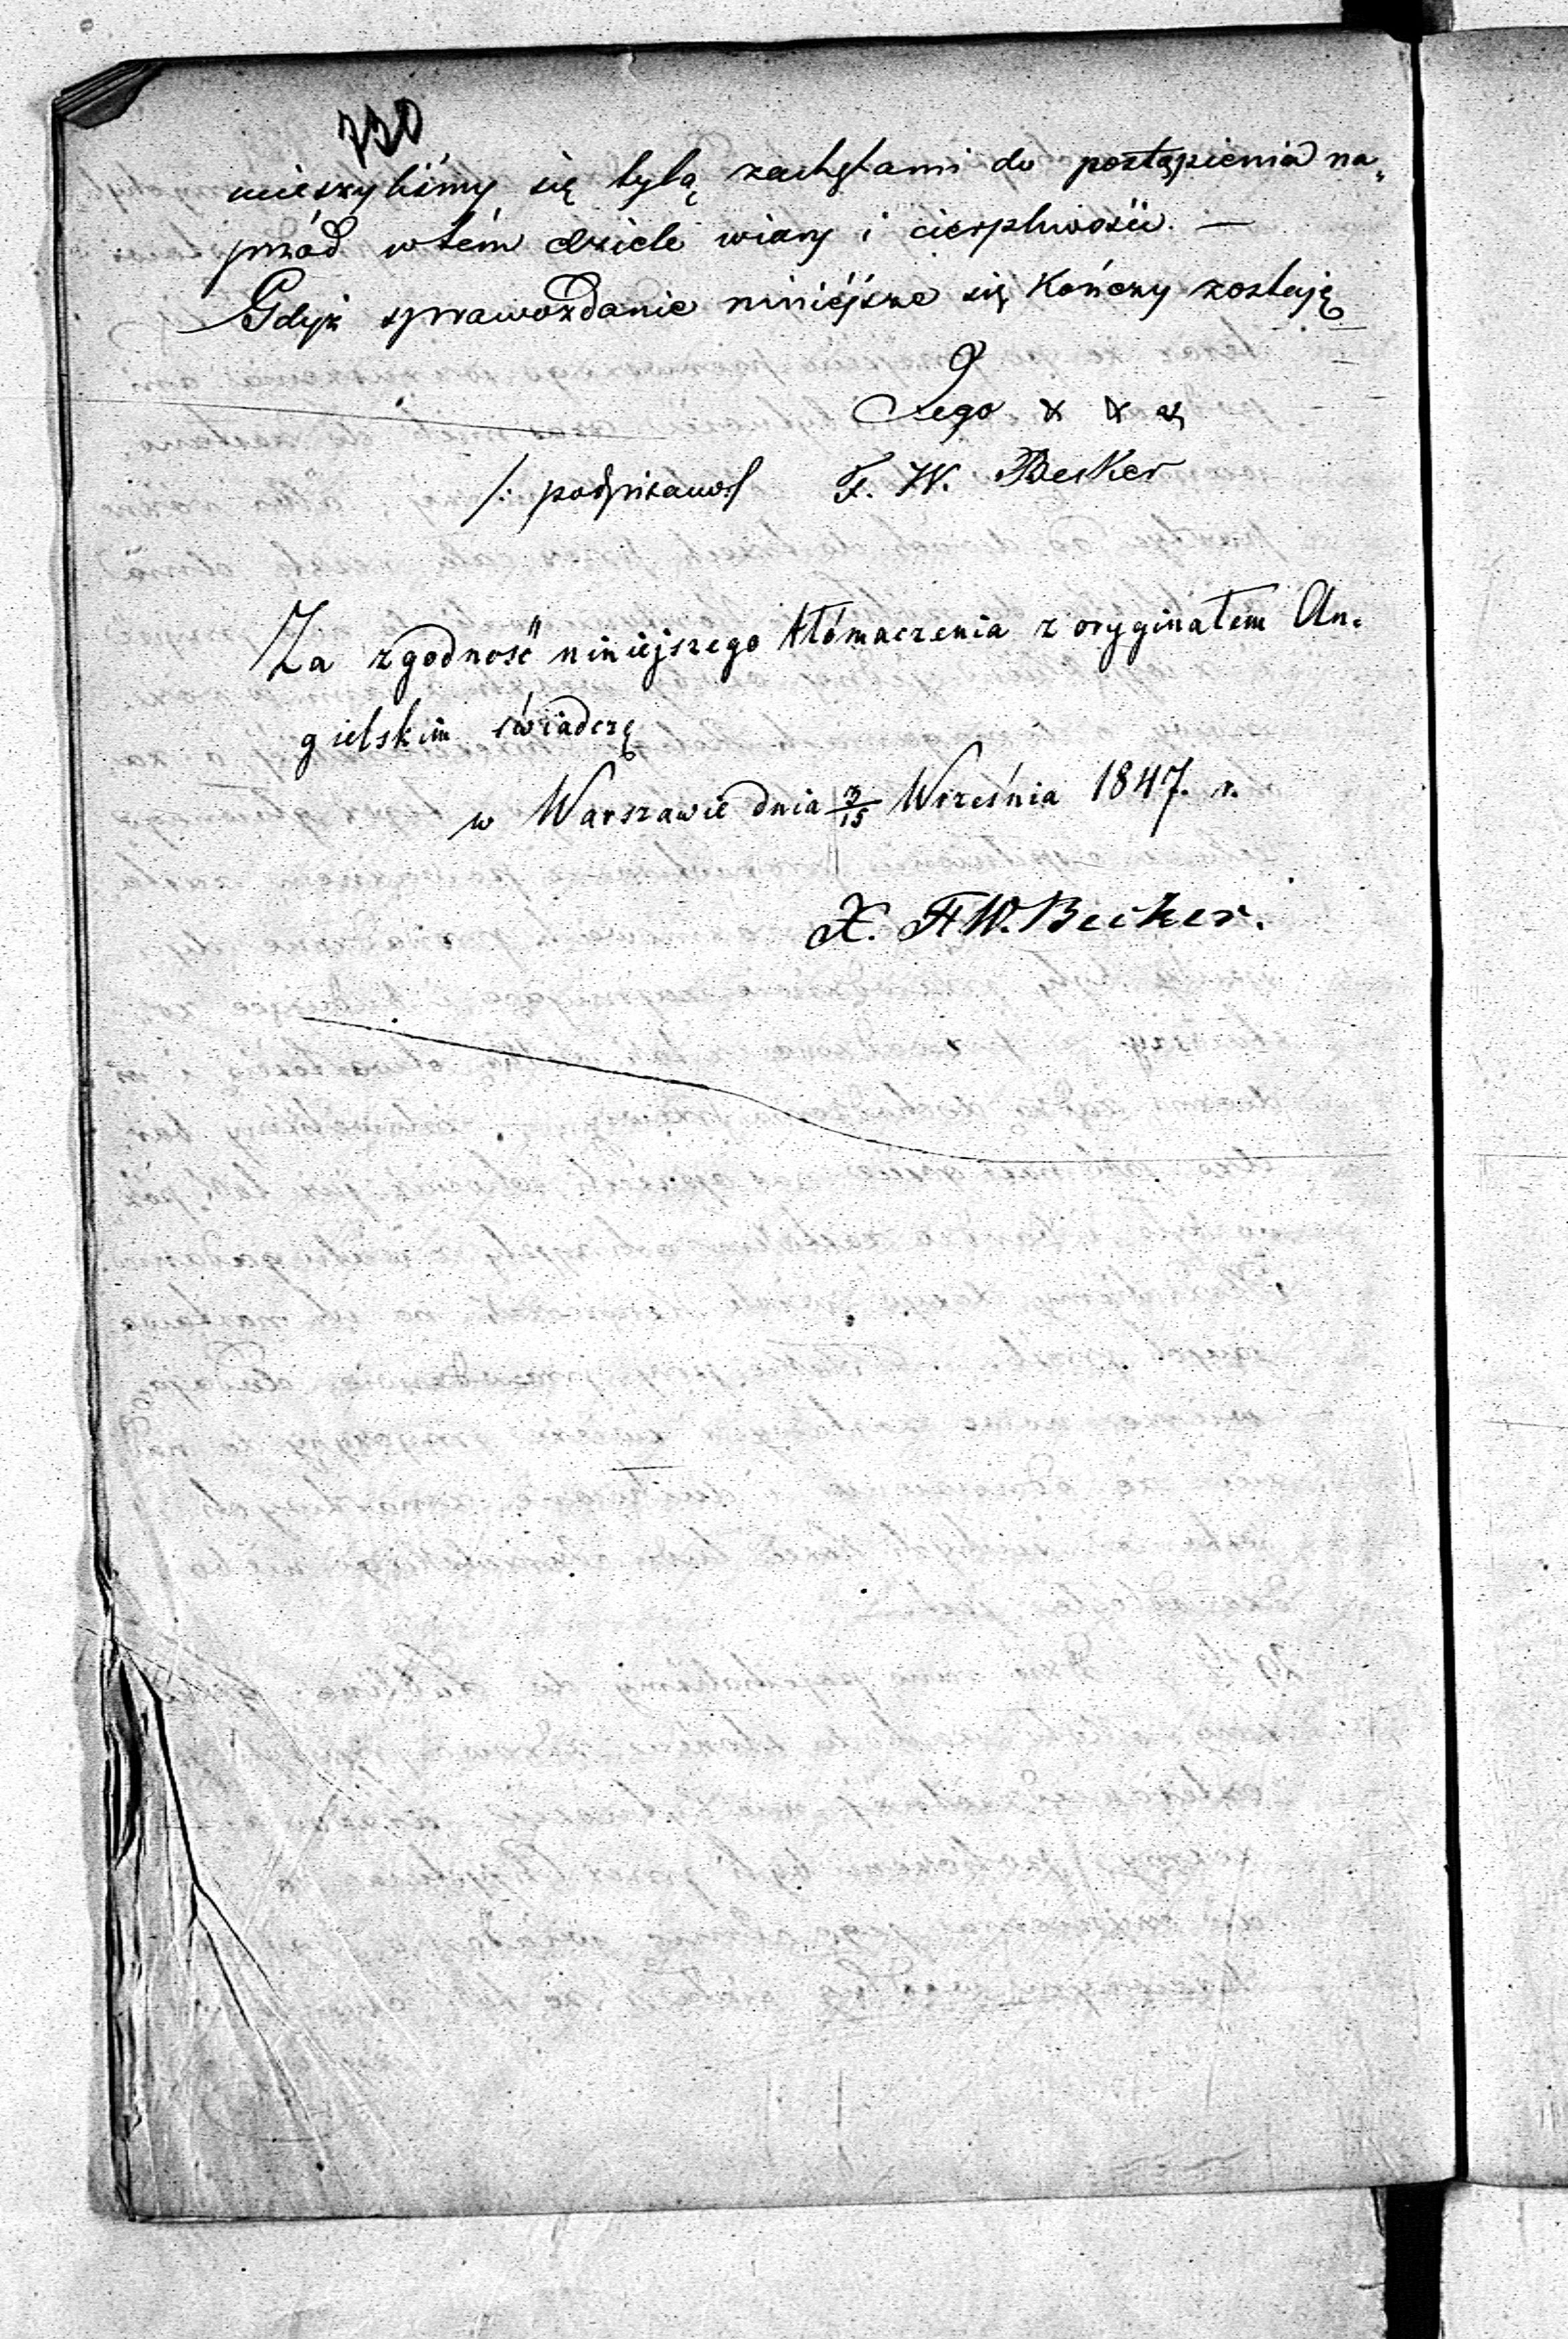 730
cieszyliśmy się byłą zachętami do postąpienia na„
przód w tém dziele wiary i cierpliwości. —
Gdyż sprawozdanie niniéjsze się kończy zostaję
Jego x x x
/: podpisano :/ F. W. Becker
Za zgodność niniejszego tłómaczenia z oryginałem An„
gielskim świadczę
w Warszawie dnia 3/15 Września 1847. r.
X. F. W. Becker.